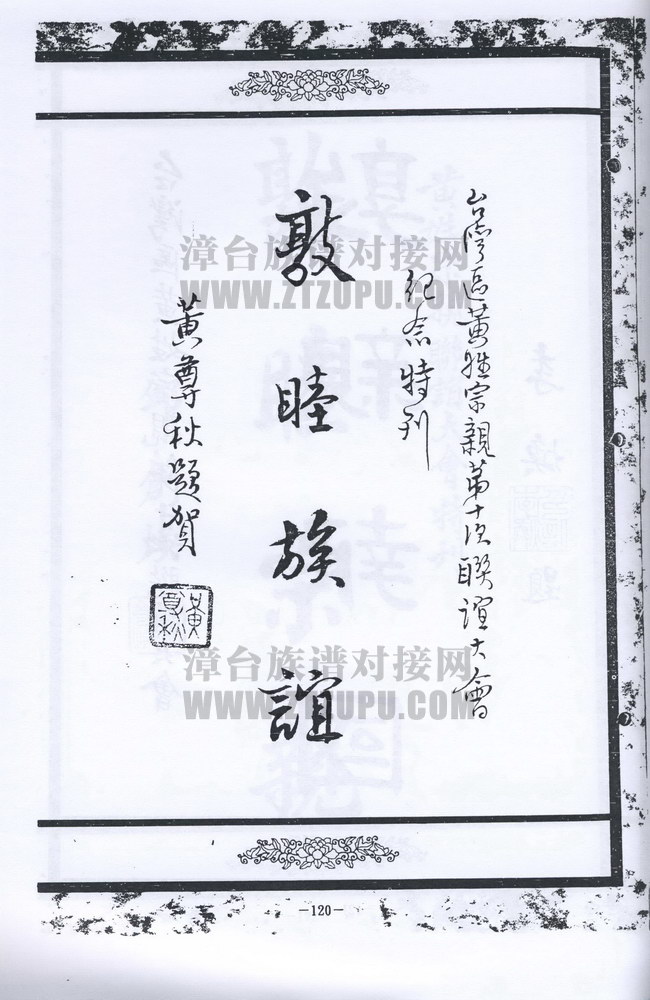 台灣區黃姓宗親第十次聯誼大會
紀念特刊
敦睦族誼
黃尊秋題賀
黃尊秋
漳台族谱对接网
WWW.ZTZUPU.COM
漳台族谱对接网
WWW.ZTZUPU.COM
—120—